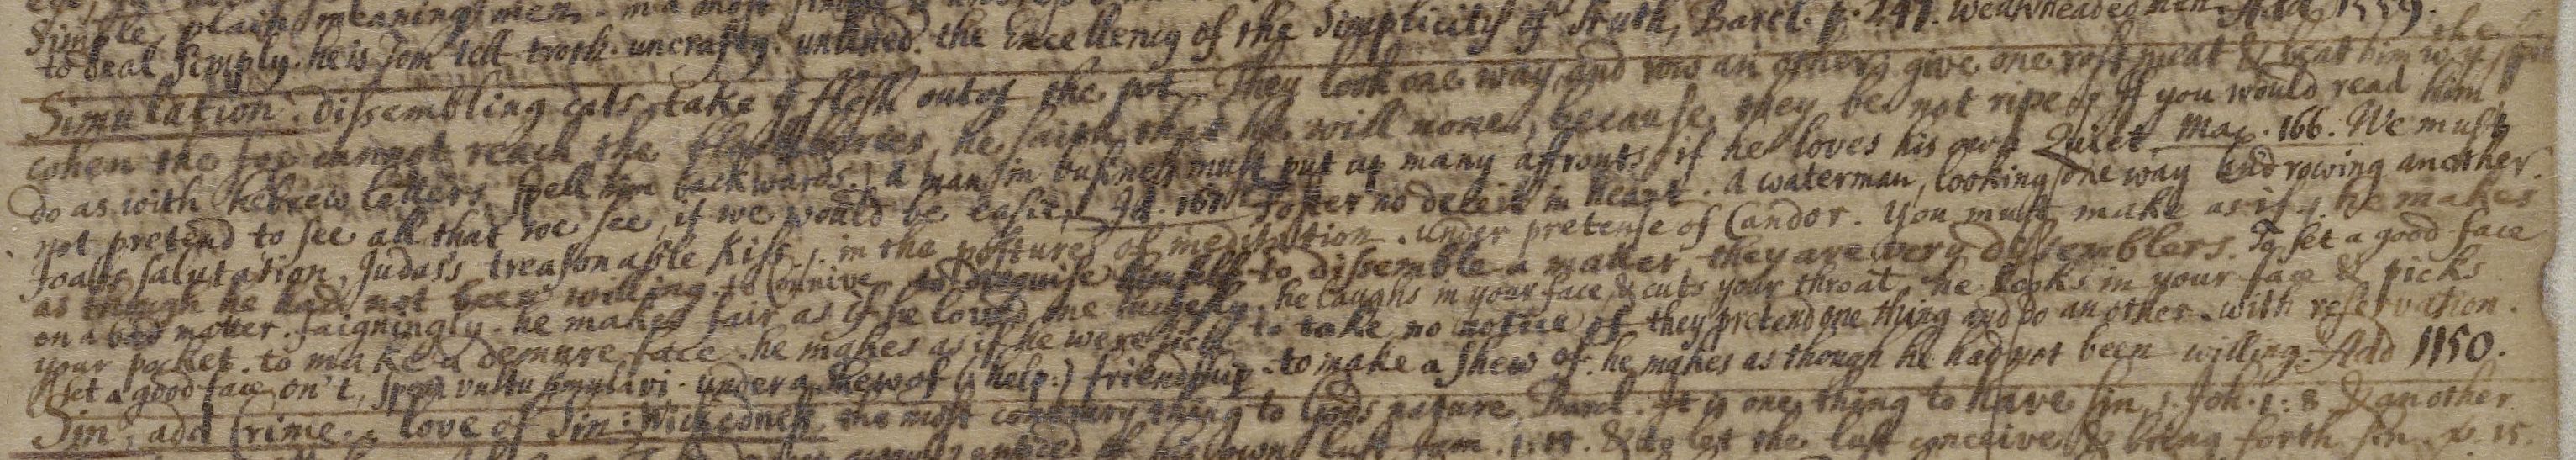 Simple, plain meaning men. in a most
to deal simply. he is Tom tell-troth. uncrafty. unlined. the Excellency of the Simplicity of Truth, Barcl. p. 241. weakheaded men. Add 1559.
Simulation. dissembling cats take ye flesh out of the pot. They look one way, and row an other. give one rost meat & beat him wth the spit
when the fox cannot reach the he saith that he will none, because they be not ripe. If you would read him
do as with hebrew letters, spell him backwards. a man in business must put up many affronts, if he loves his own Quiet. Max. 166. We must
not pretend to see all that we see, if we would be easie, Id. 167. Foster no deceit in heart. a waterman, looking one way and rowing another.
Joabs salutation, Judas's treasonable kiss. in the posture of meditation. under pretense of Candor. You must make as if. he makes
as though he had not been willing. to Connive. to disguise himself. to dissemble a matter. they are very dissemblers. To set a good face
on a bad matter. faigningly. he makes fair as if he loved me hugely. he laughs in your face, & cuts your throat. he looks in your face & picks
your pocket. to make a demure face. he makes as if he were sick. to take no notice of. they pretend one thing and do an other. with reservation.
set a good face on't, vultu simulavi. under a shew of (help:) friendship. to make a shew of. he makes as though he had not been willing. Add 1150.
Sin, add Crime. love of Sin: Wickedness the most contrary thing to Gods nature, Barcl. It is one thing to have sin, 1. Joh. 1:8 & another
enticed of his own lust Jam. 1: 14. & to let the lust conceive & bring forth sin. v. 15.